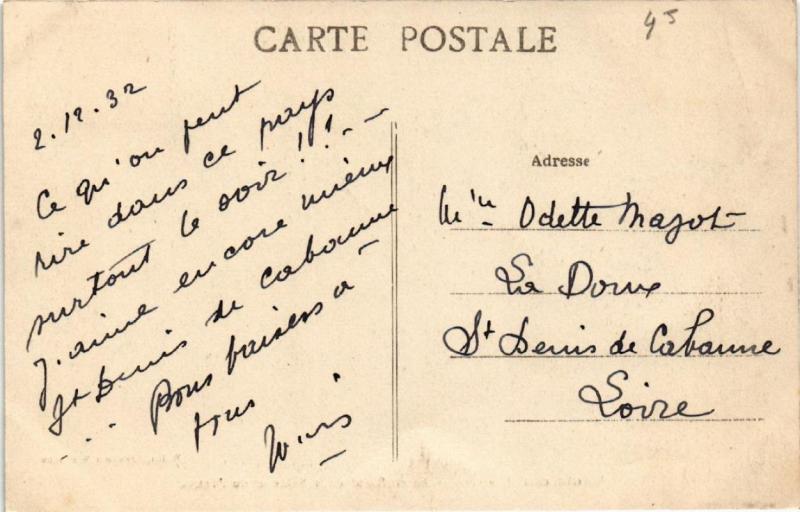 CARTE POSTALE
45
2.12.32
Ce qu'on peut
rire dans ce pays
surtout le soir!!--
J'aime encore mieux
St Denis de Cabanne
... Bons baisers a
tous
Adresse
Mlle Odette Mazot
La Doux
St Denis de Cabanne
Loire